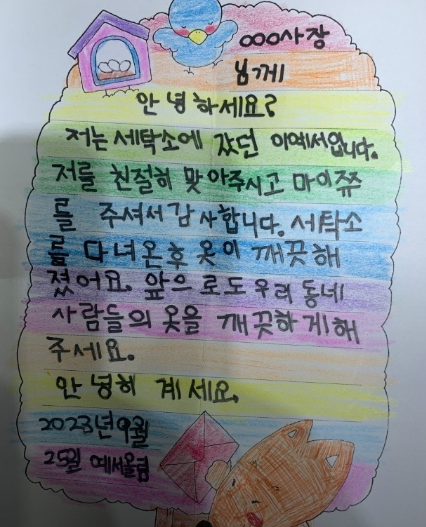 ooo사장
님께
안녕하세요?
저는 세탁소에 갔던 이예서입니다.
저를 친절히 맞아주시고 마이쮸
를 주셔서 감사합니다. 세탁소
를 다녀온후 옷이 깨끗해
졌어요. 앞으로도 우리 동네
사람들의 옷을 깨끗하게해
주세요.
안녕히 계세요.
2023년 9월
25일 예서올림